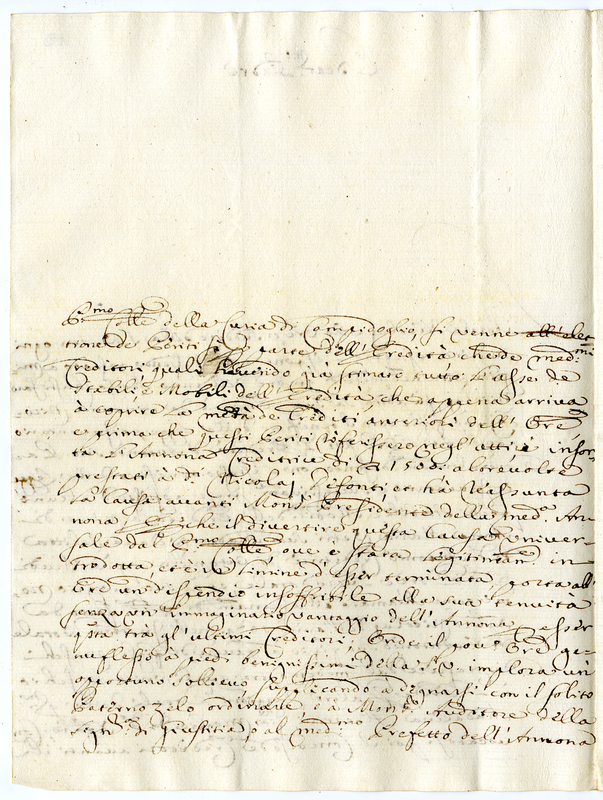 Emo
Colle della Curia di Campidoglio, si venne all'elet
tione de Periti p parte dell'Eredità che de medmi
Creditori quali havendo già stimato tutto l'asse de
Stabili e Mobili dell'Eredità, che appena arriva
à coprire la metà de Crediti anteriori dell'Ore
e prima che questi Periti riferissero negl'atti è insor
ta l'Annona Creditrice di 1500 altre volte
prestati à di Nicola, et hà riassunta
la Causa avanti Monsr Presidente della meda An
nona, che il divertire questa Causa Univer
sale dal Emo Colle ove è stata legitimamte in
trodotta et è in limine d'esser terminata porta all'
Ore un dispendio insoffribile alla sua tenuità
senza un immaginario vantaggio dell'Annona p esser
qsta trà gl'ultimi Creditori; Onde il povo Ore ge-
nuflesso à piedi benignissimi della S.V. implora un
opportuno sollievo supplicando à degnarsi con il solito
Paterno zelo ordinare ò à Monsr Auditore della
Segnra di Giustitia, ò al medmo Prefetto dell'Annona